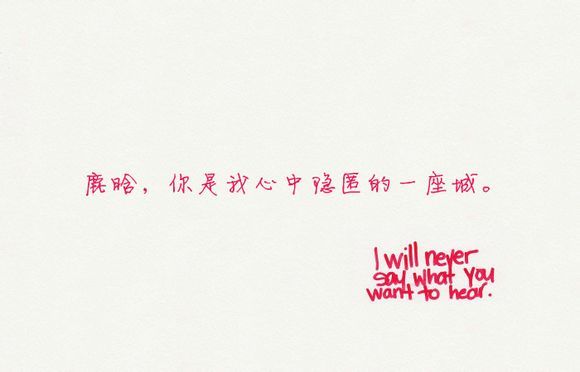 鹿晗，你是我心中隐匿的一座城。
I will never
say what you
want to hear.